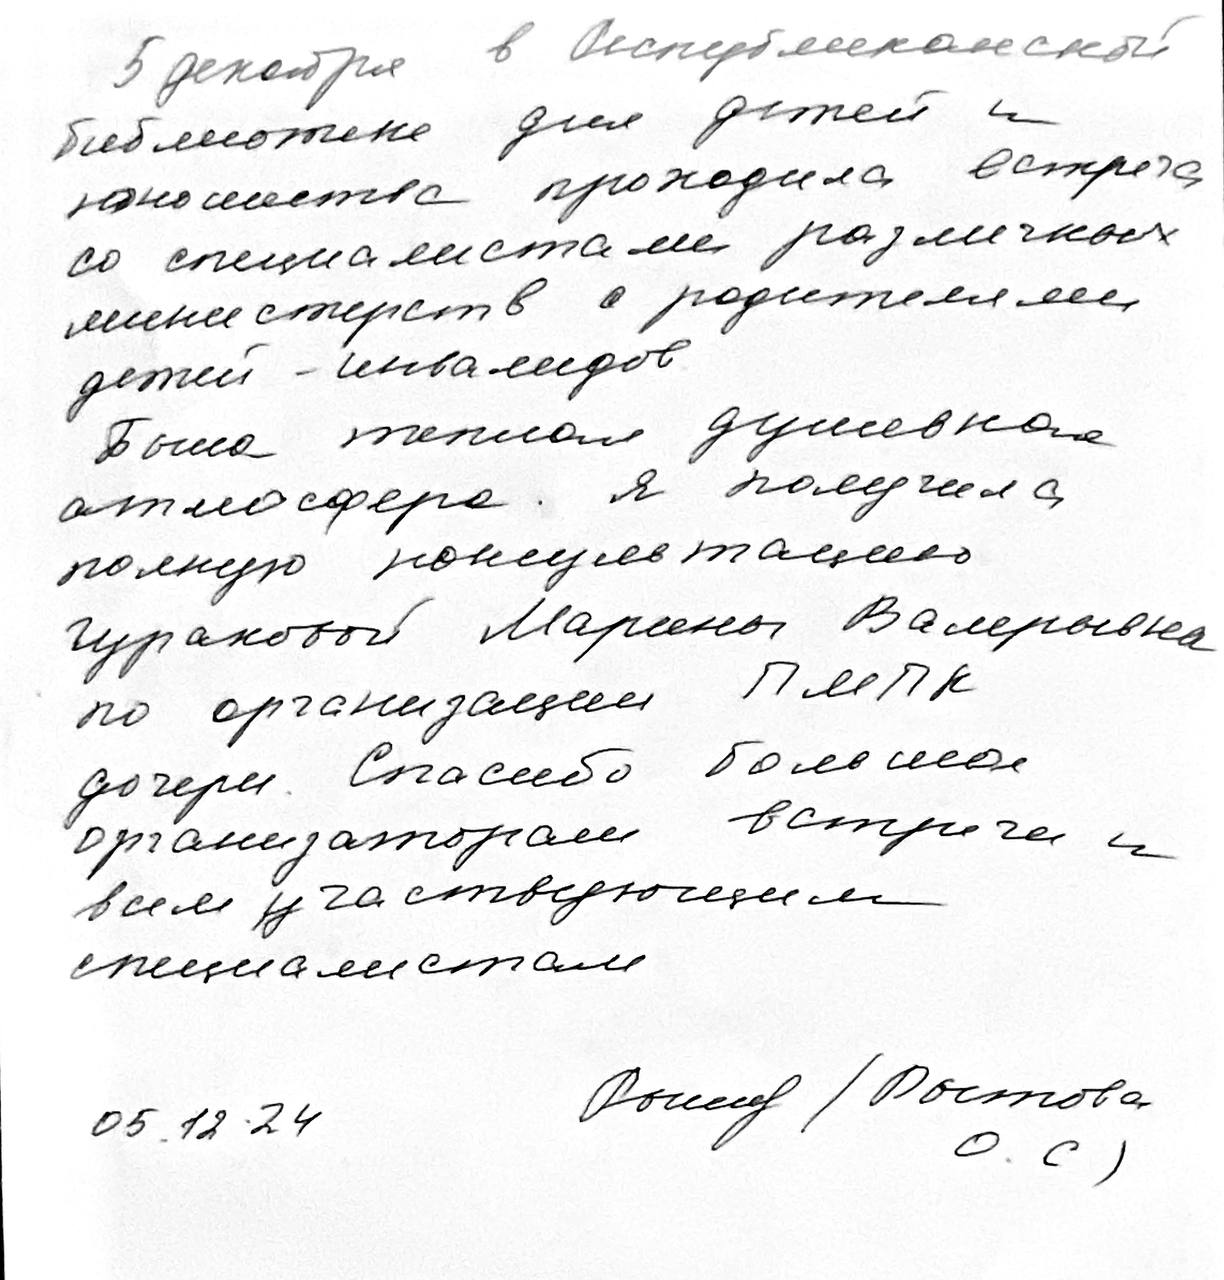 5 декабря в Республиканской
библиотеке для детей и
юношества проходила встреча
со специалистами различных
министерств с родителями
детей - инвалидов
Была теплая душевная
атмосфера. Я получила
полную консультацию
Чураковой Марины Валерьевна
по организации ПМПК
дочери. Спасибо большое
организаторам встречи и
всем участвующим
специалистам
05.12.24
О. С)